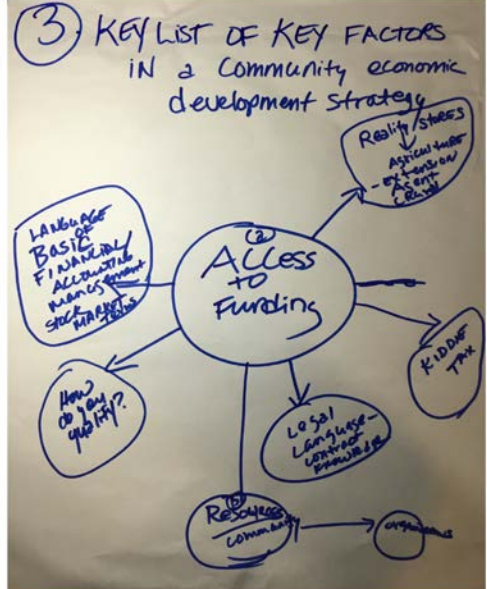 3. KEY LIST OF KEY FACTORS
IN a Community economic
development strategy
Reality STORES
AGRICULTURE
- EXTENSION
Agent
(Rural)
LANGUAGE
OF
Basic
FINANCIAL/
ACCOUNTING
Management
STOCK
MARKET TERMS
(a)
Access
to
Funding
KIDDIE
TAX
How
do you
qualify?
Legal
Language -
contract
knowledge
(b)
Resources
community